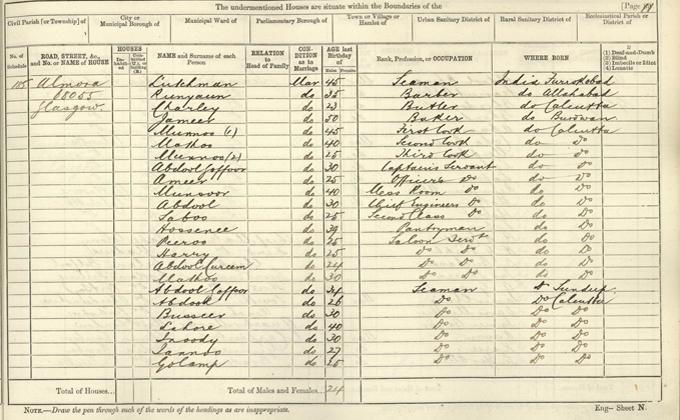 The undermentioned Houses are situate within the Boundaries of the [Page
Civil Parish [or Township] of City or Municipal Borough of Municipal Ward of Parliamentary Borough of Town or Village or Hamlet of Urban Sanitary District of Rural Sanitary District of Ecclesiastical Parish or District of
No. of Schedule ROAD, STREET, &c., and No. or NAME of HOUSE HOUSES Inhabited Uninhabited (U.), or Building (B.) NAME and Surname of each Person RELATION to Head of Family CONDITION as to Marriage AGE last Birthday of Males Females Rank, Profession, or OCCUPATION WHERE BORN If (1) Deaf-and-Dumb (2) Blind (3) Imbecile or Idiot (4) Lunatic
105 Almora Lutchman Mar 45 Seaman India Furrokabad
68055 Runyaun do 35 Barber do Allahabad
Glasgow. Charley do 23 Butler do Calcutta
Jameer do 50 Baker do Burdwan
Munnoo (1) do 45 First Cook do Calcutta
Mathoo do 40 Second Cook do Do
Munnoo (2) do 25 Third Cook do Do
Abdool Gaffoor do 30 Captains Servant do Do
Ameer do 25 Officers Do do Do
Munsoor do 40 Mess Room Do do Do
Abdool do 30 Chief Engineers Do do Do
Saboo do 25 Second Class Do do Do
Hossenee do 39 Pantryman do Do
Peeroo do 25 Saloon Servt do Do
Harry do 25 Do Do do Do
Abdool Kureem do 24 Do Do do Do
Mathoo do 30 Do Do do Do
Abdool Gaffoor do 34 Seaman Do Sundeep
Abdool do 26 Do Do Calcutta
Busseer do 30 Do Do Do
Lahore do 40 Do Do Do
do 30 Do Do Do
do 27 Do Do Do
Golamp do 25 Do Do Do
Total of Houses... Total of Males and Females... 24
NOTE.—Draw the pen through such of the words of the headings as are inappropriate. Eng— Sheet N.